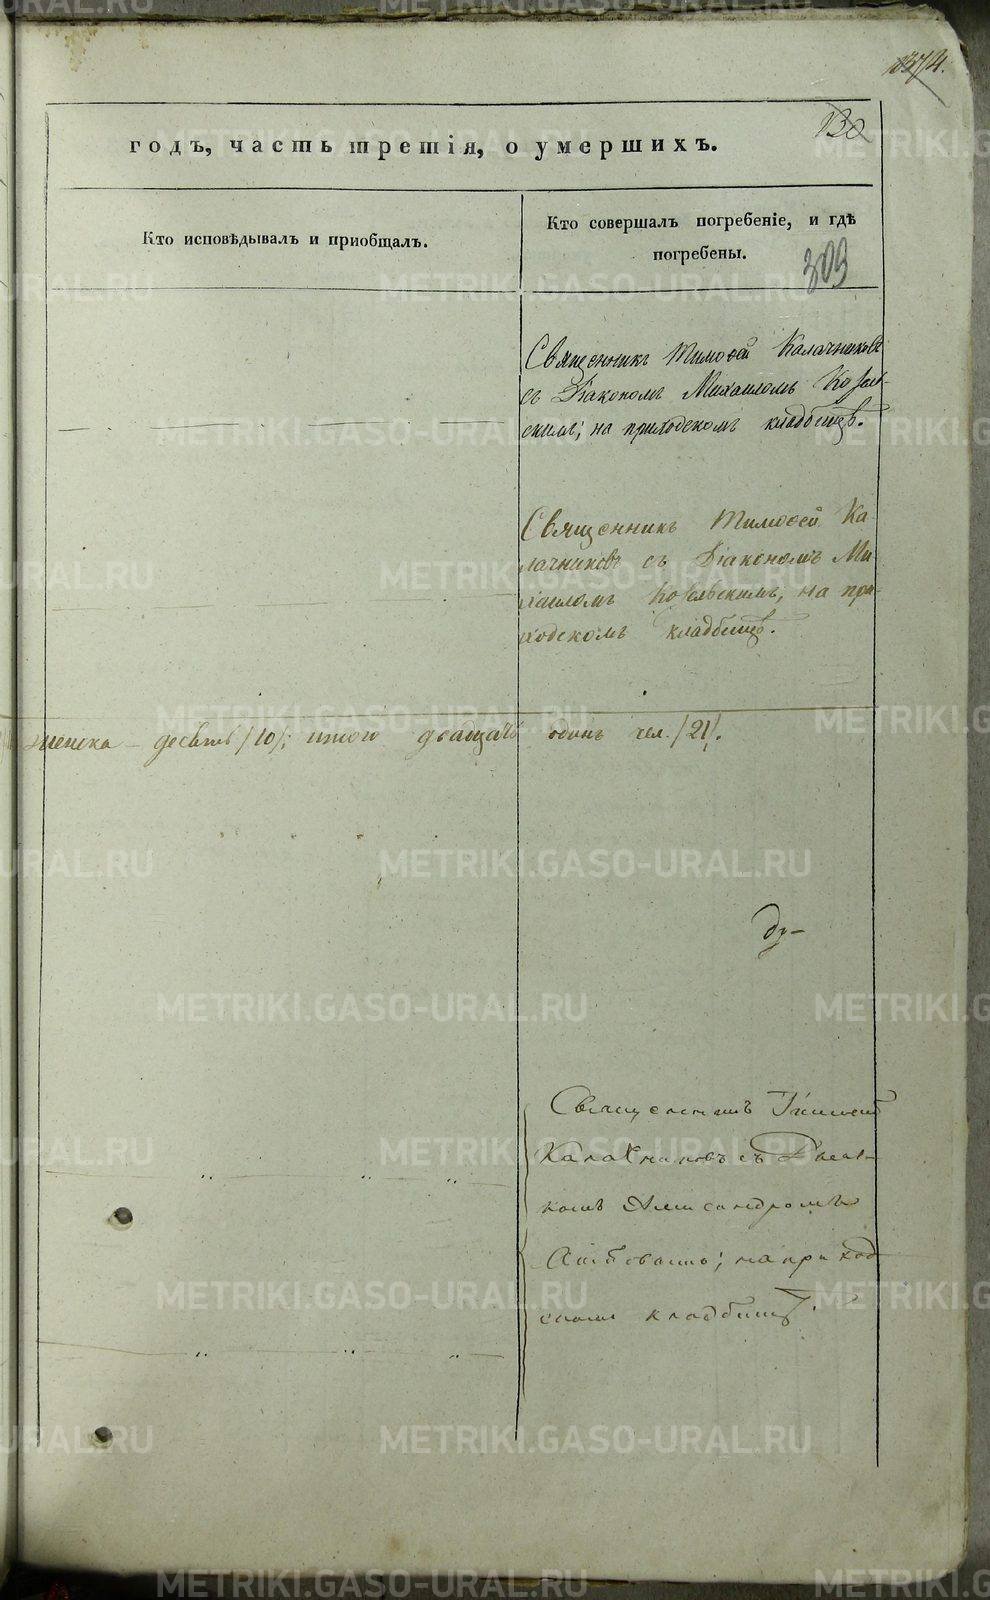 1374.
130
годъ, часть третія, о умершихъ.
Кто исповѣдывалъ и приобщалъ.
Кто совершалъ погребеніе, и гдѣ
погребены.
309
Священникъ Тимоѳей Калачниковъ
съ Діакономъ Михаиломъ Козель-
скимъ; на приходскомъ кладбищѣ.
Священникъ Тимоѳей Ка-
лачниковъ съ Діакономъ Ми-
хаиломъ Козельскимъ, на при-
ходскомъ кладбищѣ.
женска – десять /10/; итого двадцать одинъ чел. /21/.
Священникъ Тимоѳей
Калачниковъ съ Дьяч-
комъ Александромъ
на приход
скомъ кладбищѣ.
METRIKI.GASO-URAL.RU